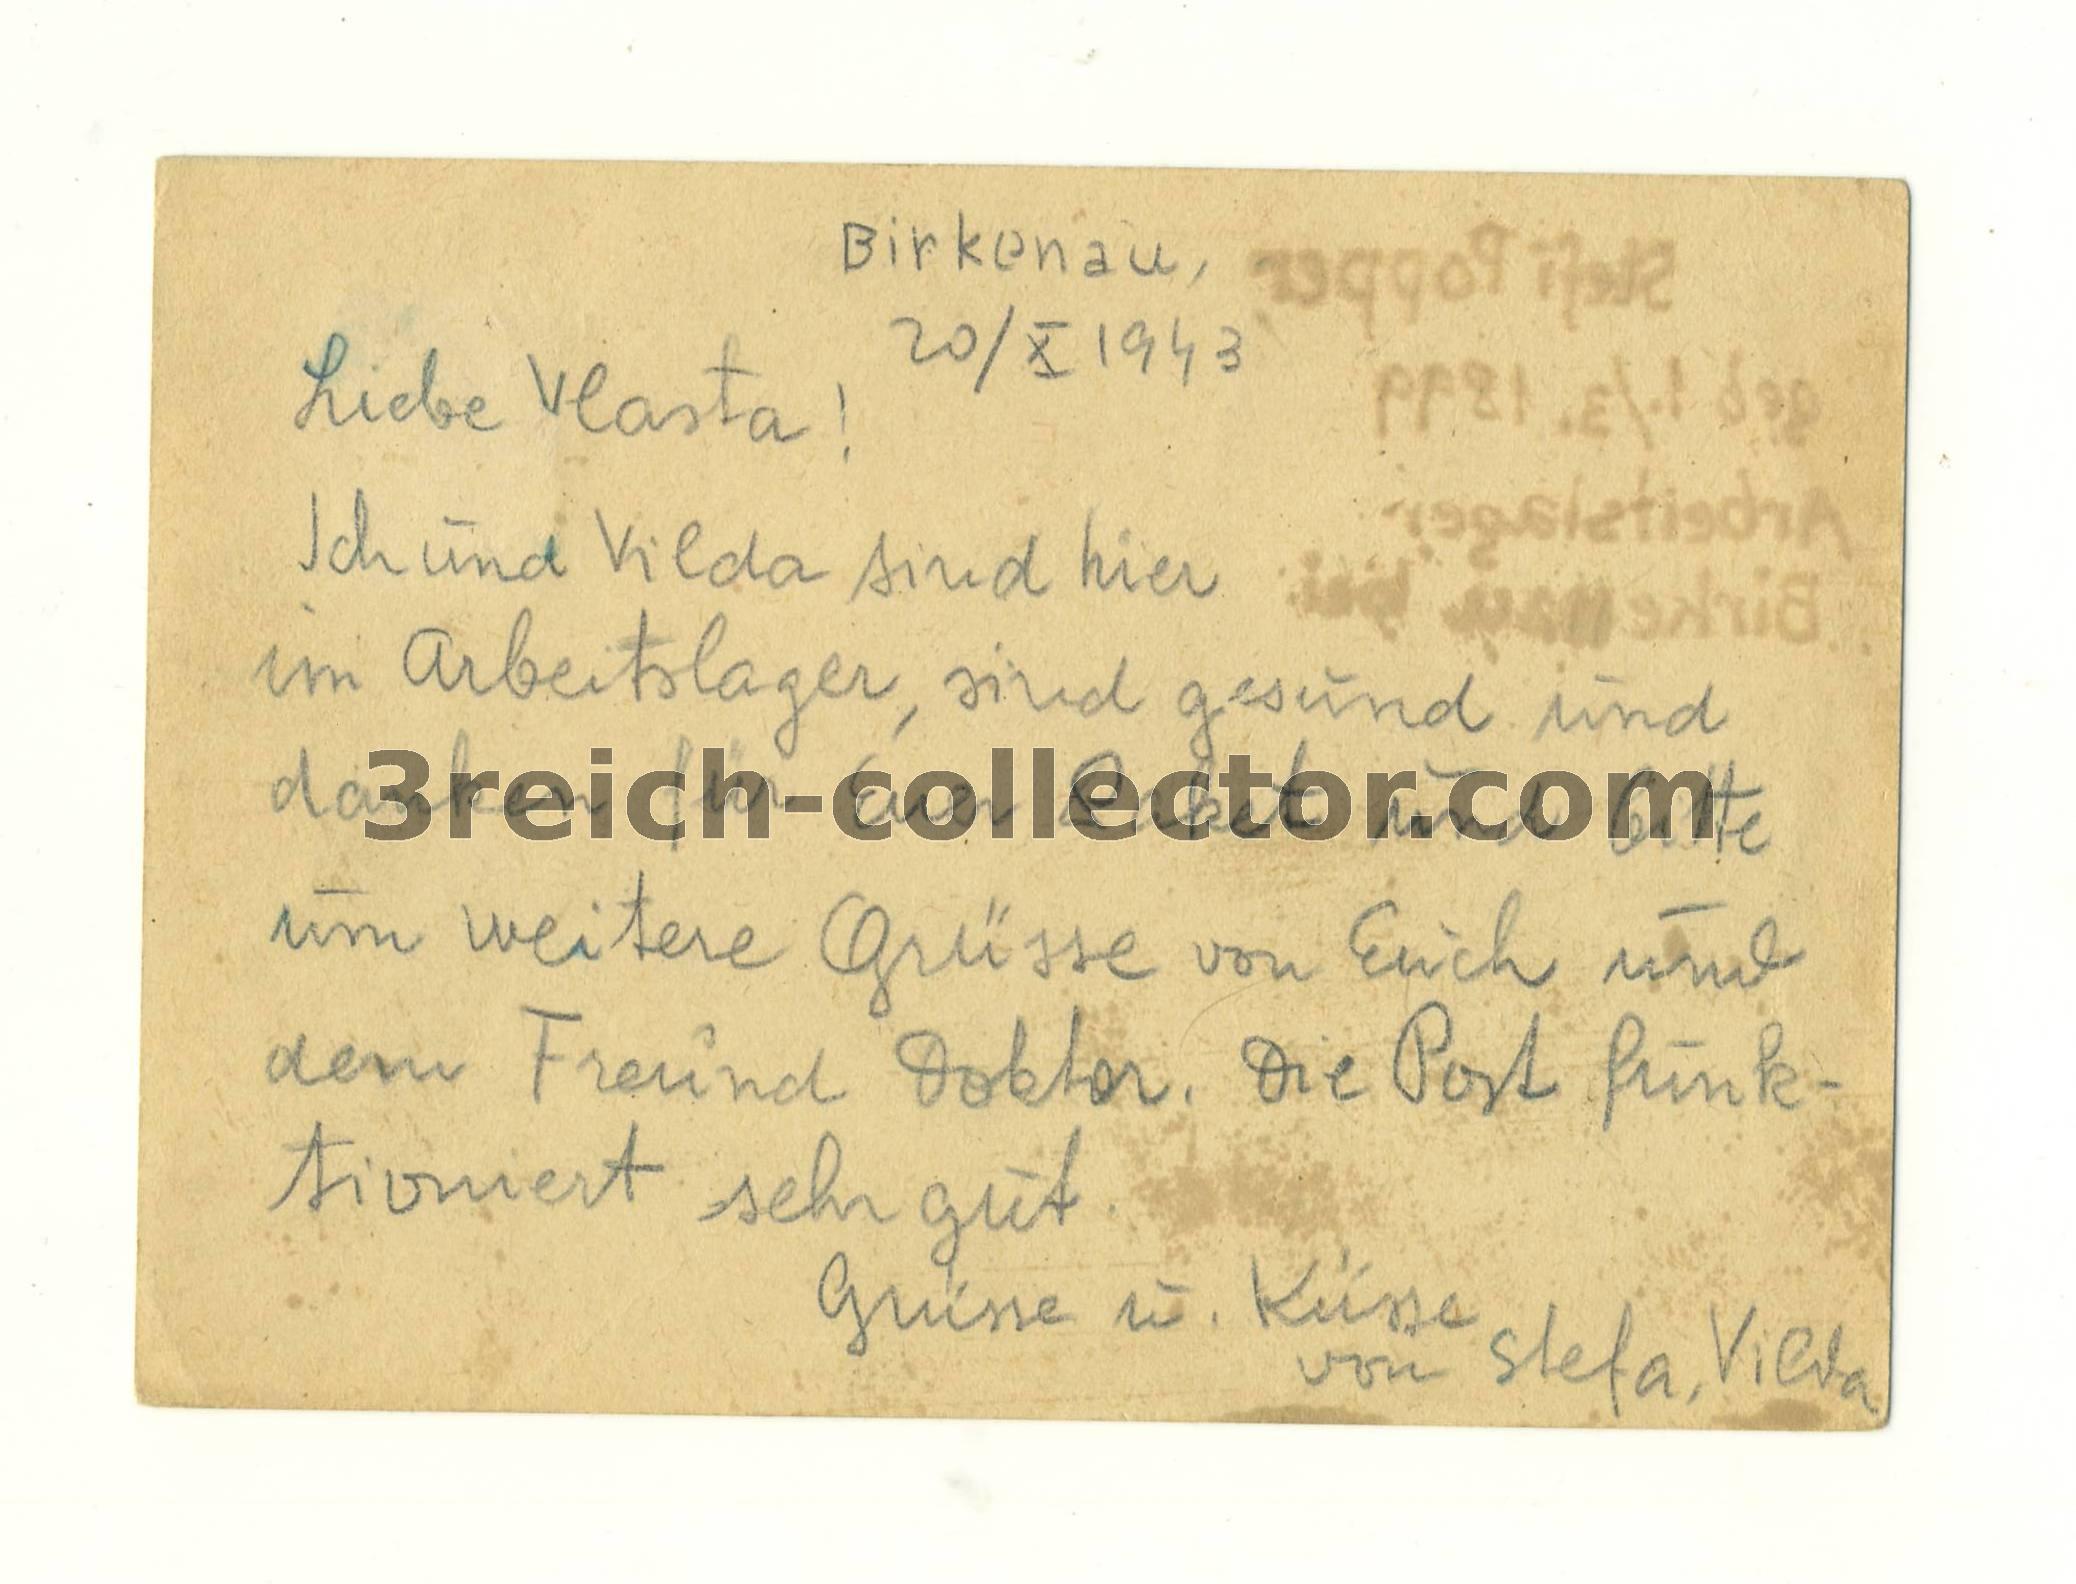 Birkenau,
20/X 1943
Liebe Vlasta!
Ich und Vilda sind hier
im Arbeitslager, sind gesund und
danken für Euer Paket und bitte
um weitere Grüsse von Erich und
dem Freund Doktor. Die Post funk-
tioniert sehr gut.
Grüsse u. Küsse
von Stefa, Vilda
Stefi Popper
geb 1./3. 1899
Arbeitslager
Birkenau bei
3reich-collector.com